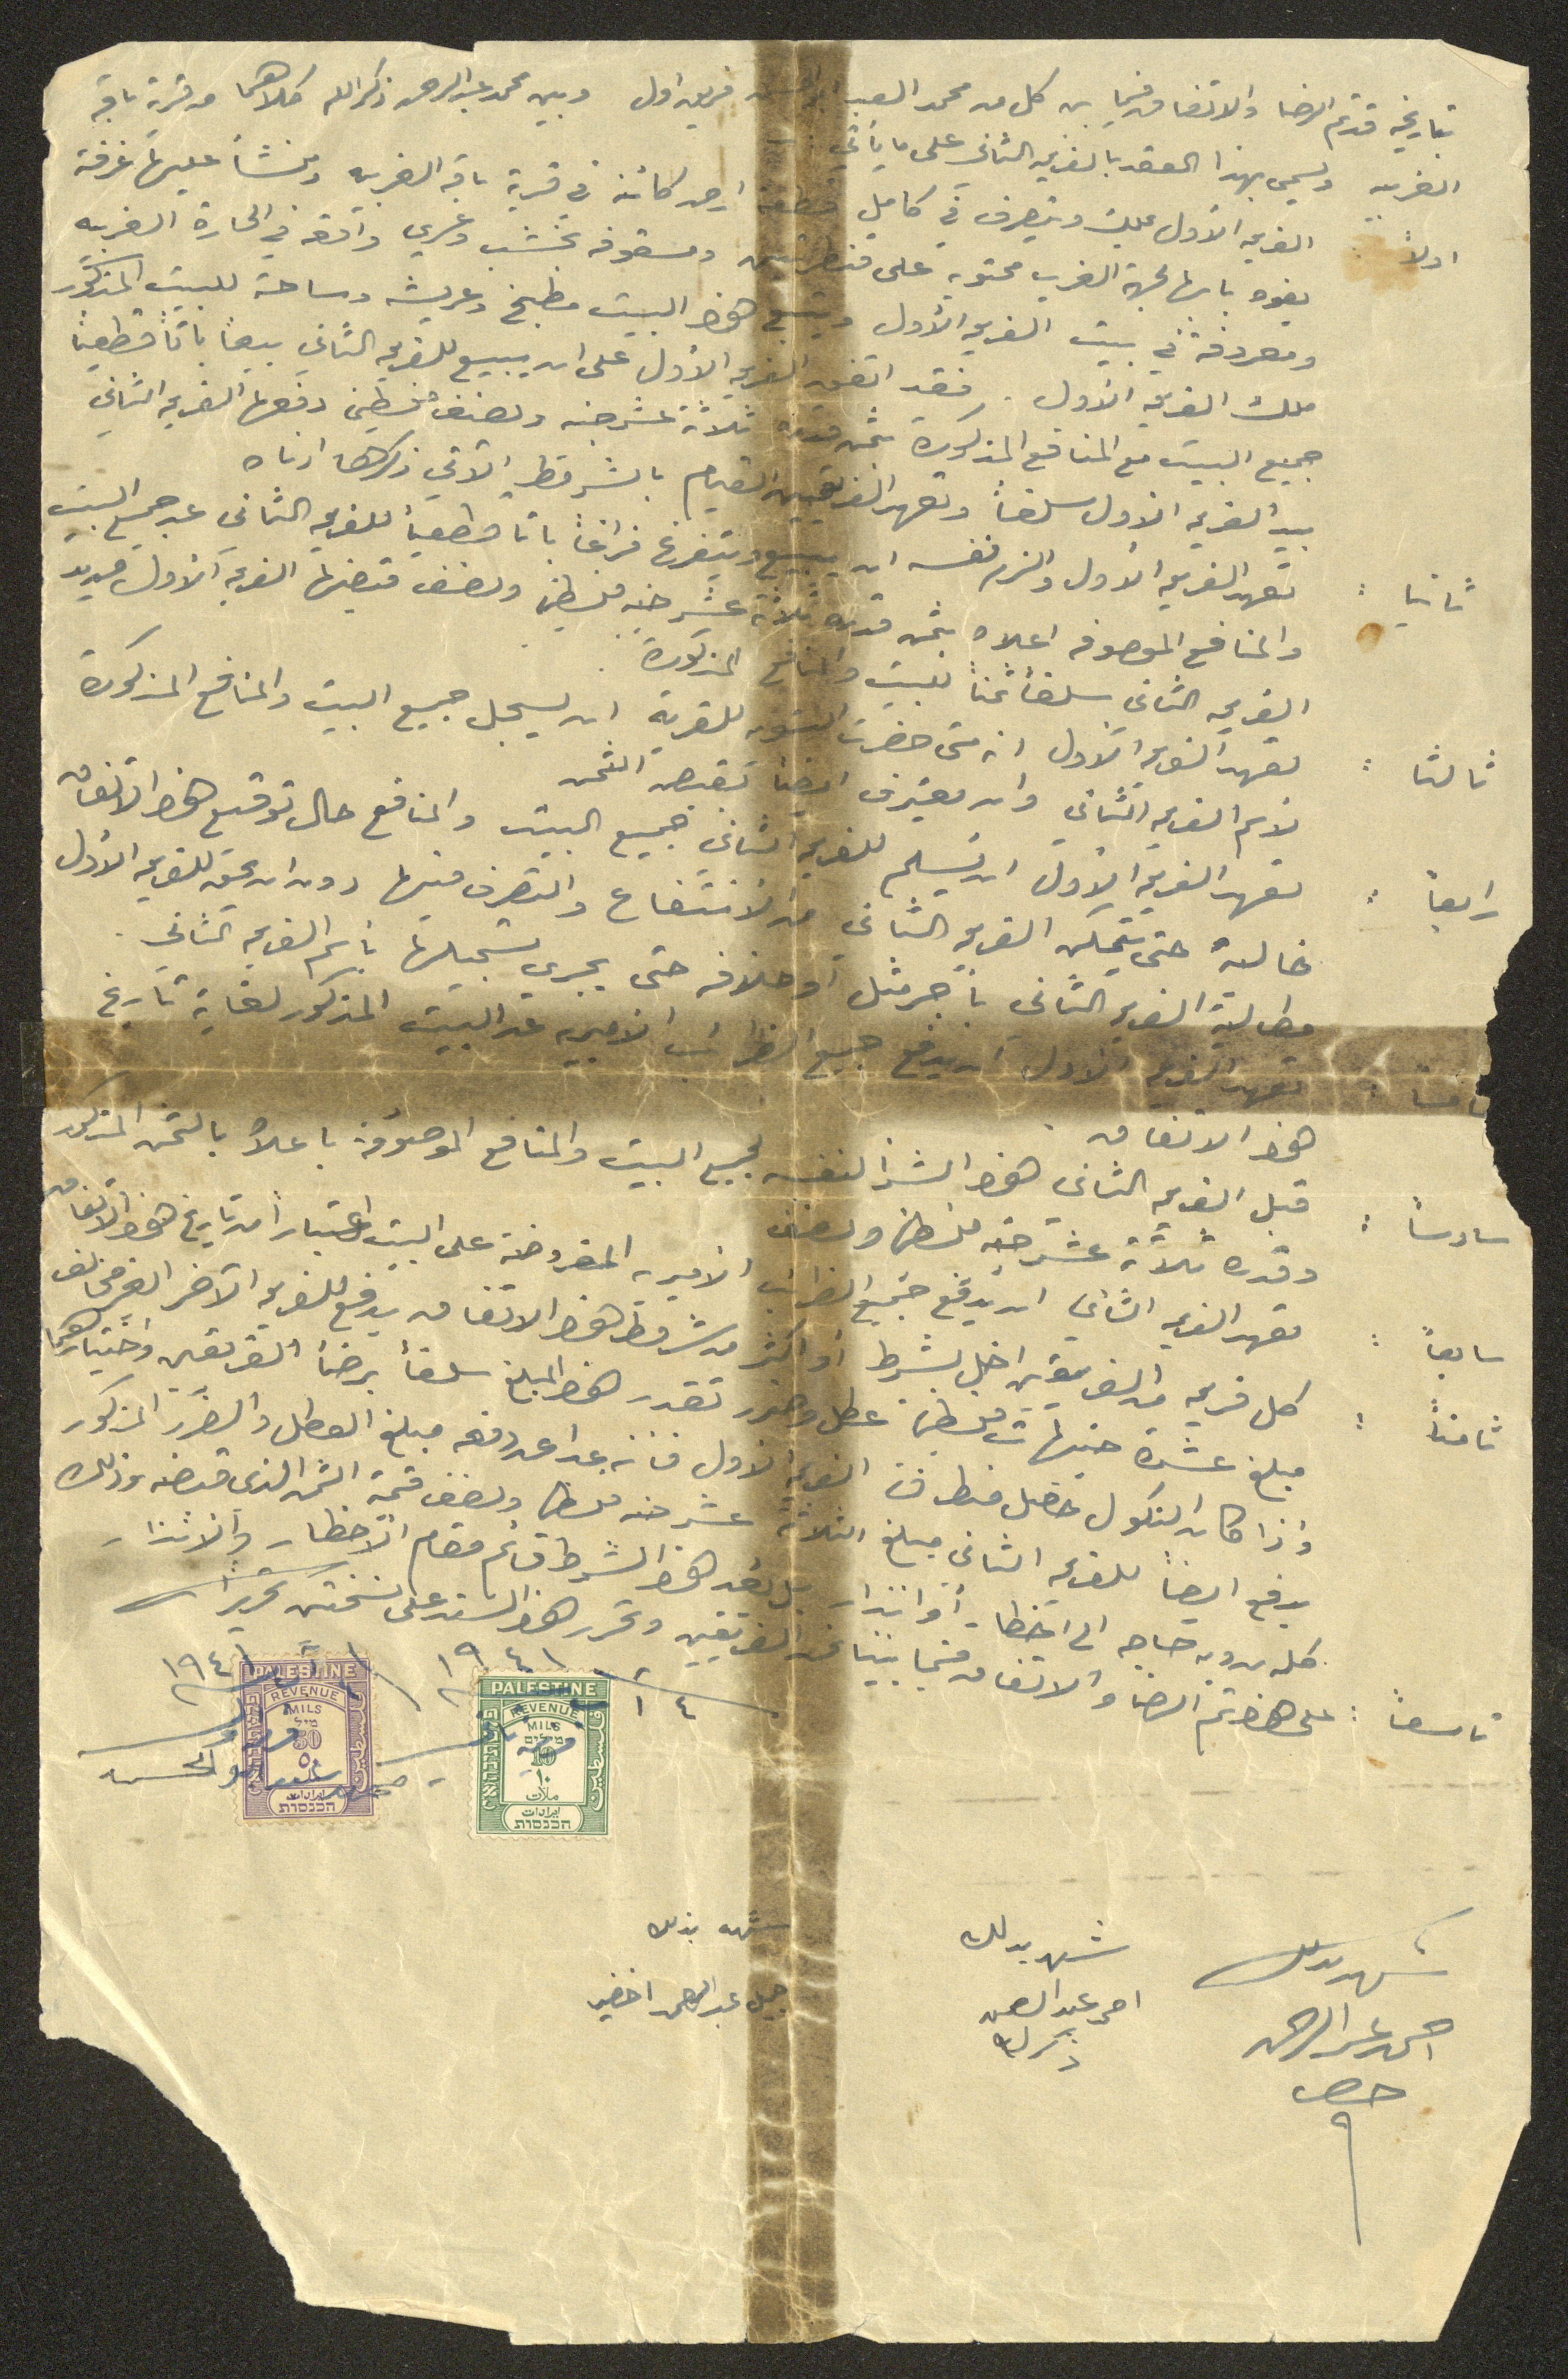 بتاريخه قد تم الرضا والاتفاق فيما بين كل من محمد العبد ابو الحسن فريق اول وبين محمد عبد الرحمن ذكر الله كلاهما من قرية باقة
الغربيه ويسمى بهذا العقد بالفريق الثاني على ما يأتي :
اولاً : الفريق الأول يملك ويتصرف في كامل قطعة ارض كائنة في قرية باقه الغربيه ومنشأ عليها غرفة
يفوه بابها لجهة الغرب محتوية على قنطرتين ومسقوفه بخشب وعري واقعه في الحارة الغربيه
ومعروفة في بيت الفريق الأول ويتبع هذا البيت مطبخ وعريشه وساحة للبيت المذكور
ملك الفريق الأول . فقد اتفق الفريق الأول على ان يبيع للفريق الثاني بيعاً باتاً قطعياً
جميع البيت مع المنافع المذكورة بثمن قدره ثلاثة عشر جنيه ونصف فلسطيني دفعها الفريق الثاني
بيد الفريق الأول سلفاً وتعهد الفريقين القيام بالشروط الآتي ذكرها ادناه
ثانيا : تعهد الفريق الأول والزم نفسه ان يبيع ويتفرغ فراغاً باتا قطعياً للفريق الثاني عن جميع البيت
والمنافع الموصوفه اعلاه بثمن قدره ثلاثة عشر جنيه فلسطيني ونصف قبضها الفريق الأول من يد
الفريق الثاني سلفاً ثمناً للبيت والمنافع المذكورة
ثالثا : تعهد الفريق الأول انه متى حضرت التسويه للقرية ان يسجل جميع البيت والمنافع المذكورة
لاسم الفريق الثاني وان يعترف ايضاً بقبض الثمن
رابعاً : تعهد الفريق الأول ان يسلم للفريق الثاني جميع البيت والمنافع حال توقيع هذا الاتفاق
خالية حتى يتمكن الفريق الثاني من الانتفاع والتصرف فيها دون ان يحق للفريق الأول
مطالبة الفريق الثاني بأجر مثل او خلافه حتى يجري تسجيلها بأسم الفريق الثاني .
خامساً : تعهد الفريق الأول ان يدفع جميع الضرائب الاميريه عن البيت المذكور لغاية تاريخ
هذا الاتفاق .
سادساً : قبل الفريق الثاني هذا الشراء لنفسه لجميع البيت والمنافع الموصوفة باعلاه بالثمن المذكور
وقدره ثلاثة عشر جنيه فلسطيني ونصف
سابعاً : تعهد الفريق الثاني ان يدفع جميع الضرائب الاميريه المفروضة على البيت اعتباراً من تاريخ هذا الاتفاق
ثامناً : كل فريق من الفريقين اخل بشرط او اكثر من شروط هذا الاتفاق يدفع للفريق الآخر الغير مخالف
مبلغ عشرة جنيهات فلسطيني عطل وضرر تقدر هذا المبلغ سلفاً برضا الفريقين واختيارهما
واذا كان النكول حصل من طرف الفريق الأول فانه عدا عن دفعه مبلغ العطل والضرر المذكور
يدفع ايضاً للفريق الثاني مبلغ الثلاثة عشر جنيه فلسطيني ونصف قيمة الثمن الذي قبضه وذلك
كله بدون حاجه الى اخطار او انذار بل يعد هذا الشرط قائم مقام الاخطار والانذار
تاسعاً : على هذا تم الرضا والاتفاق فيما بيننا نحن الفريقين وتحرر هذا السند على نسختين تحريراً
٤ / ١٩٤١
PALESTINE
REVENUE
MILS
מיל
50
٥٠
ايرادات
הכנסות
PALESTINE
REVENUE
MILS
10
١٠
ملات
ايرادات
הכנסות
فلسطين
شهد بذلك
شهد بذلك
شهد بذلك
احمد عبد الرحمن
احمد عبد الرحمن
ذكر الله
جميل عبد الرحمن اخضير